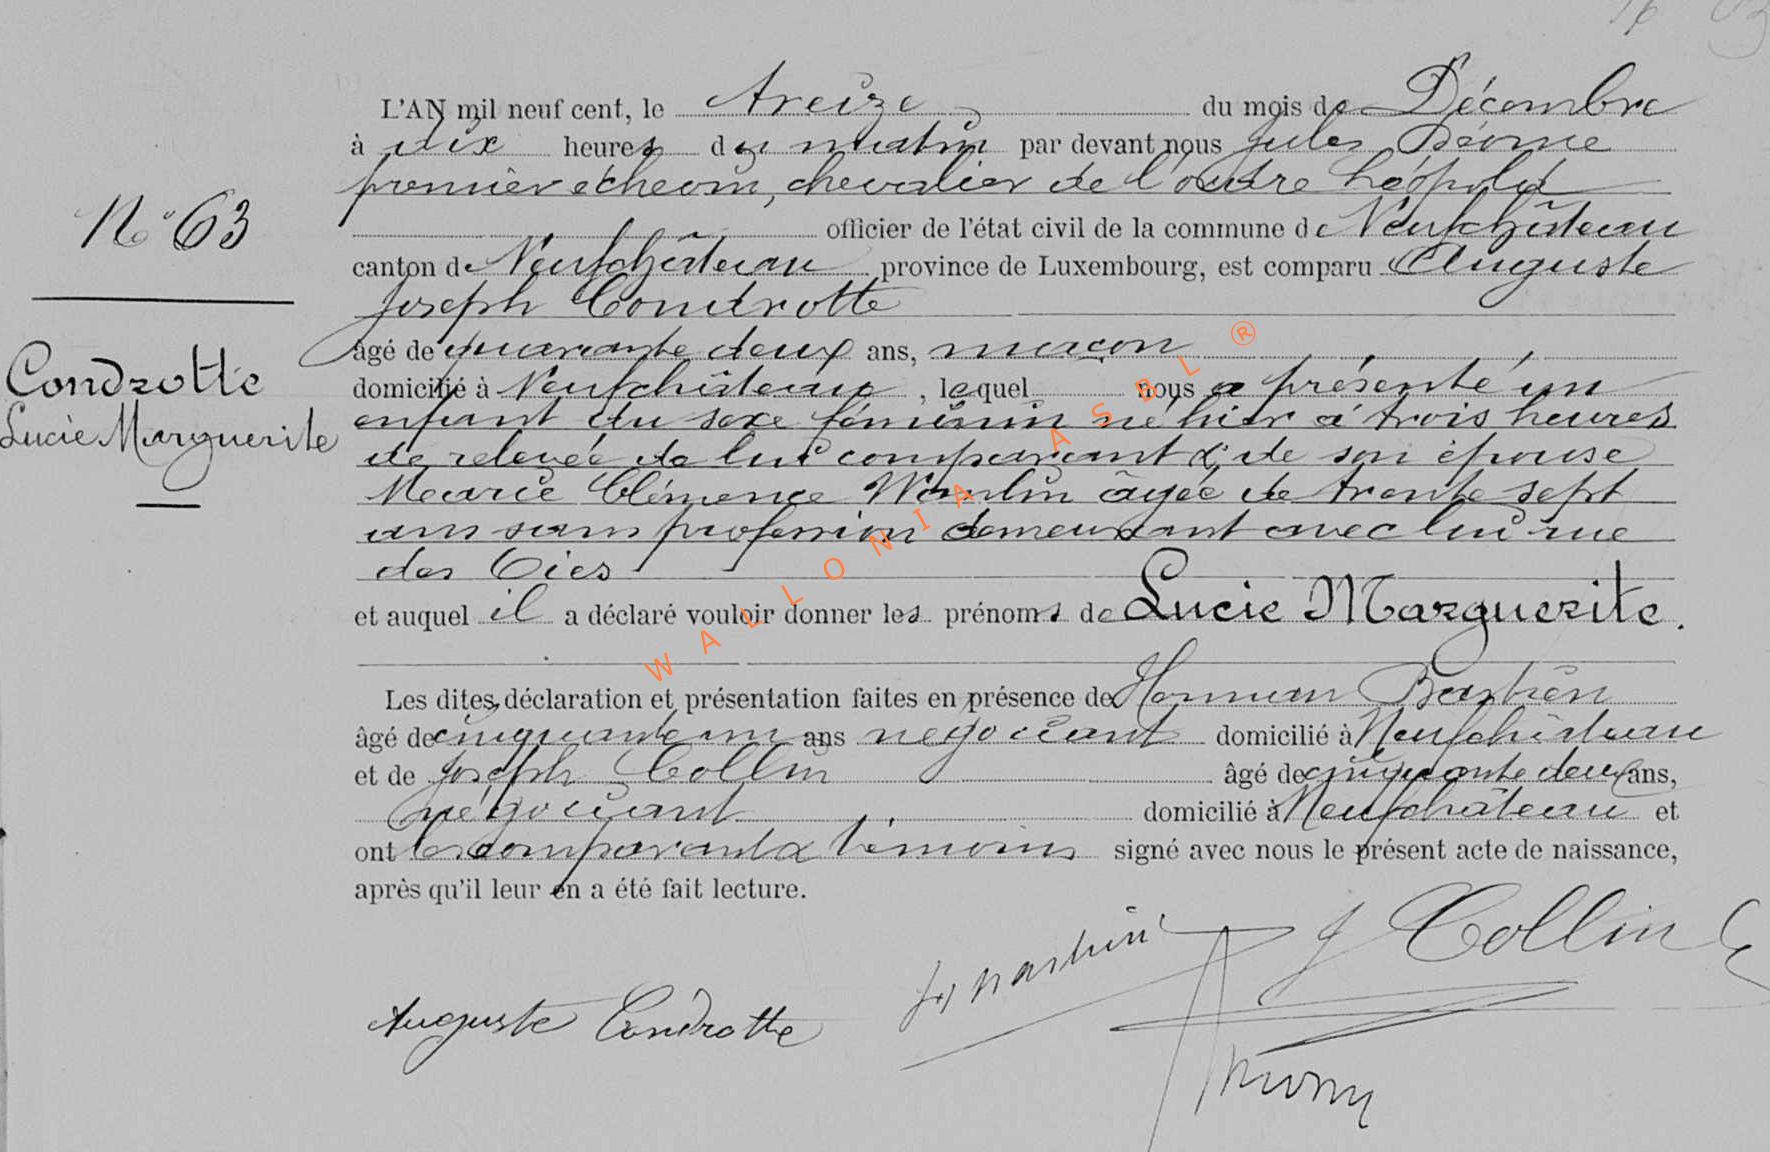 N° 63
Condrotte
Lucie Marguerite
L'AN mil neuf cent, le treize du mois de Décembre
à dix heures du matin par devant nous Jules
premier echevin, chevalier de l'ordre Léopold
officier de l'état civil de la commune de Neufchâteau
canton de Neufchâteau province de Luxembourg, est comparu Auguste
Joseph Condrotte
âgé de quarante deux ans, maçon
domicilié à Neufchâteau, lequel nous a présenté un
enfant du sexe féminin né hier à trois heures
de relevée de lui comparant & de son épouse
Marie Clémence Wanlin âgée de trente sept
ans sans profession demeurant avec lui rue
des
et auquel il a déclaré vouloir donner les prénoms de Lucie Marguerite.
Les dites déclaration et présentation faites en présence de Herman Bastien
âgé de cinquante un ans négociant domicilié à Neufchâteau
et de Joseph Collin âgé de cinquante deux ans,
négociant domicilié à Neufchâteau et
ont les comparant & témoins signé avec nous le présent acte de naissance,
après qu'il leur en a été fait lecture.
J Collin
Auguste Condrotte
WALLONIA ASBL ®